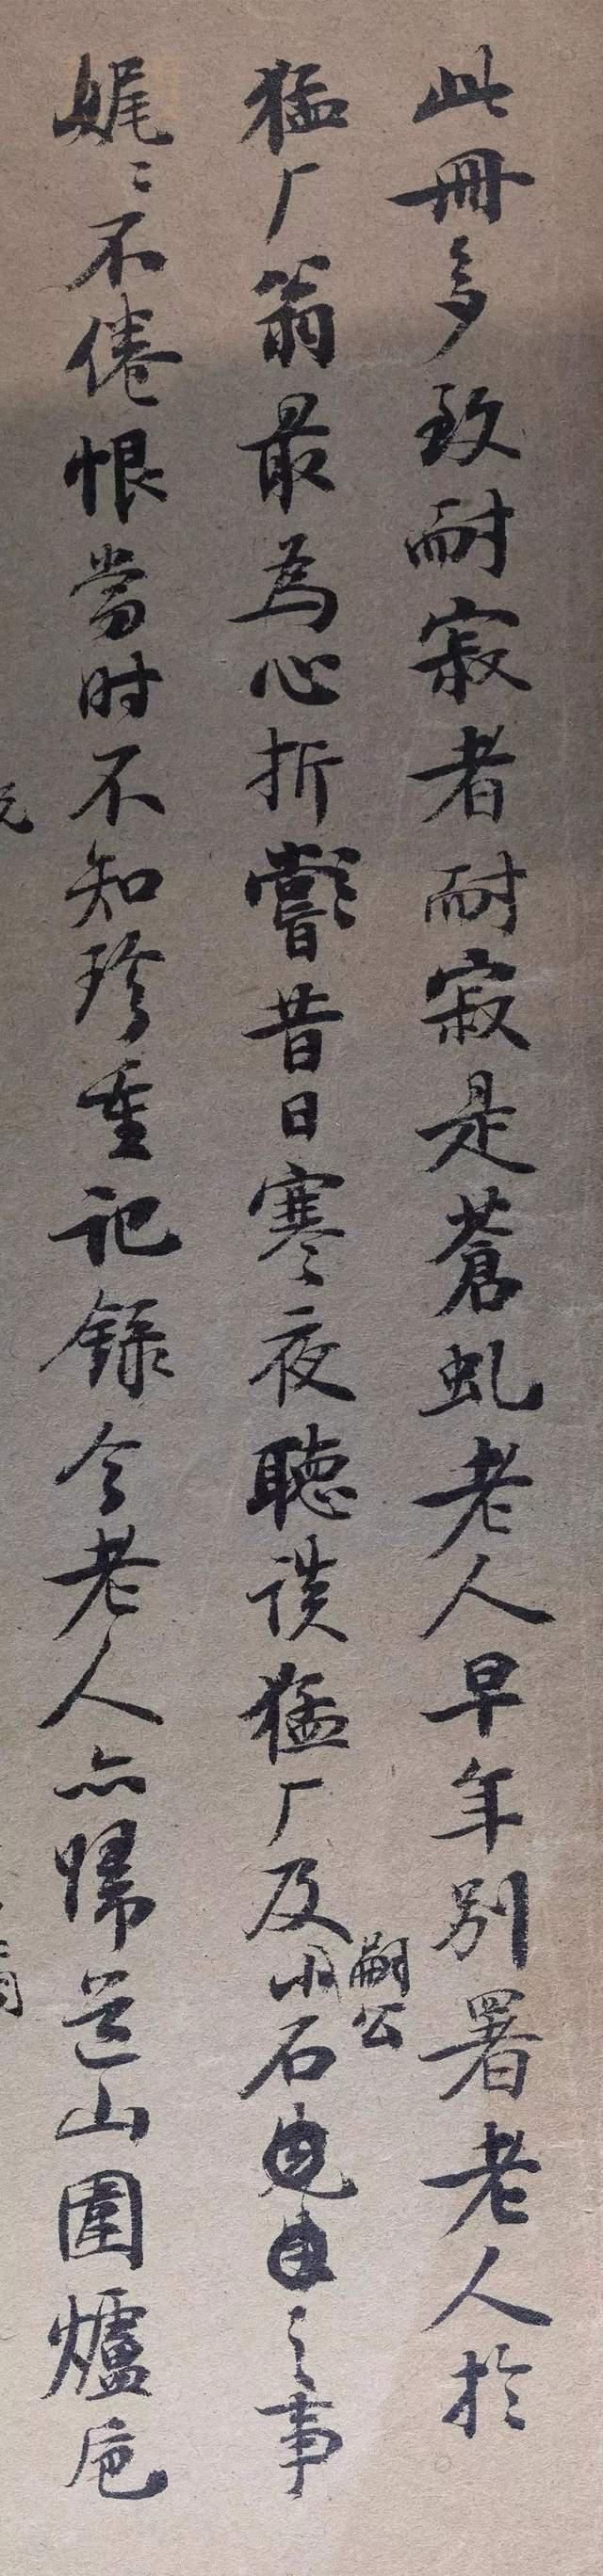 此冊多致耐寂者耐寂是蒼虬老人早年别署老人於
猛厂翁最為心折嘗昔日寒夜聽談猛厂及小石嗣公之事
娓〻不倦恨當时不知珍重记録今老人亦歸道山圍爐